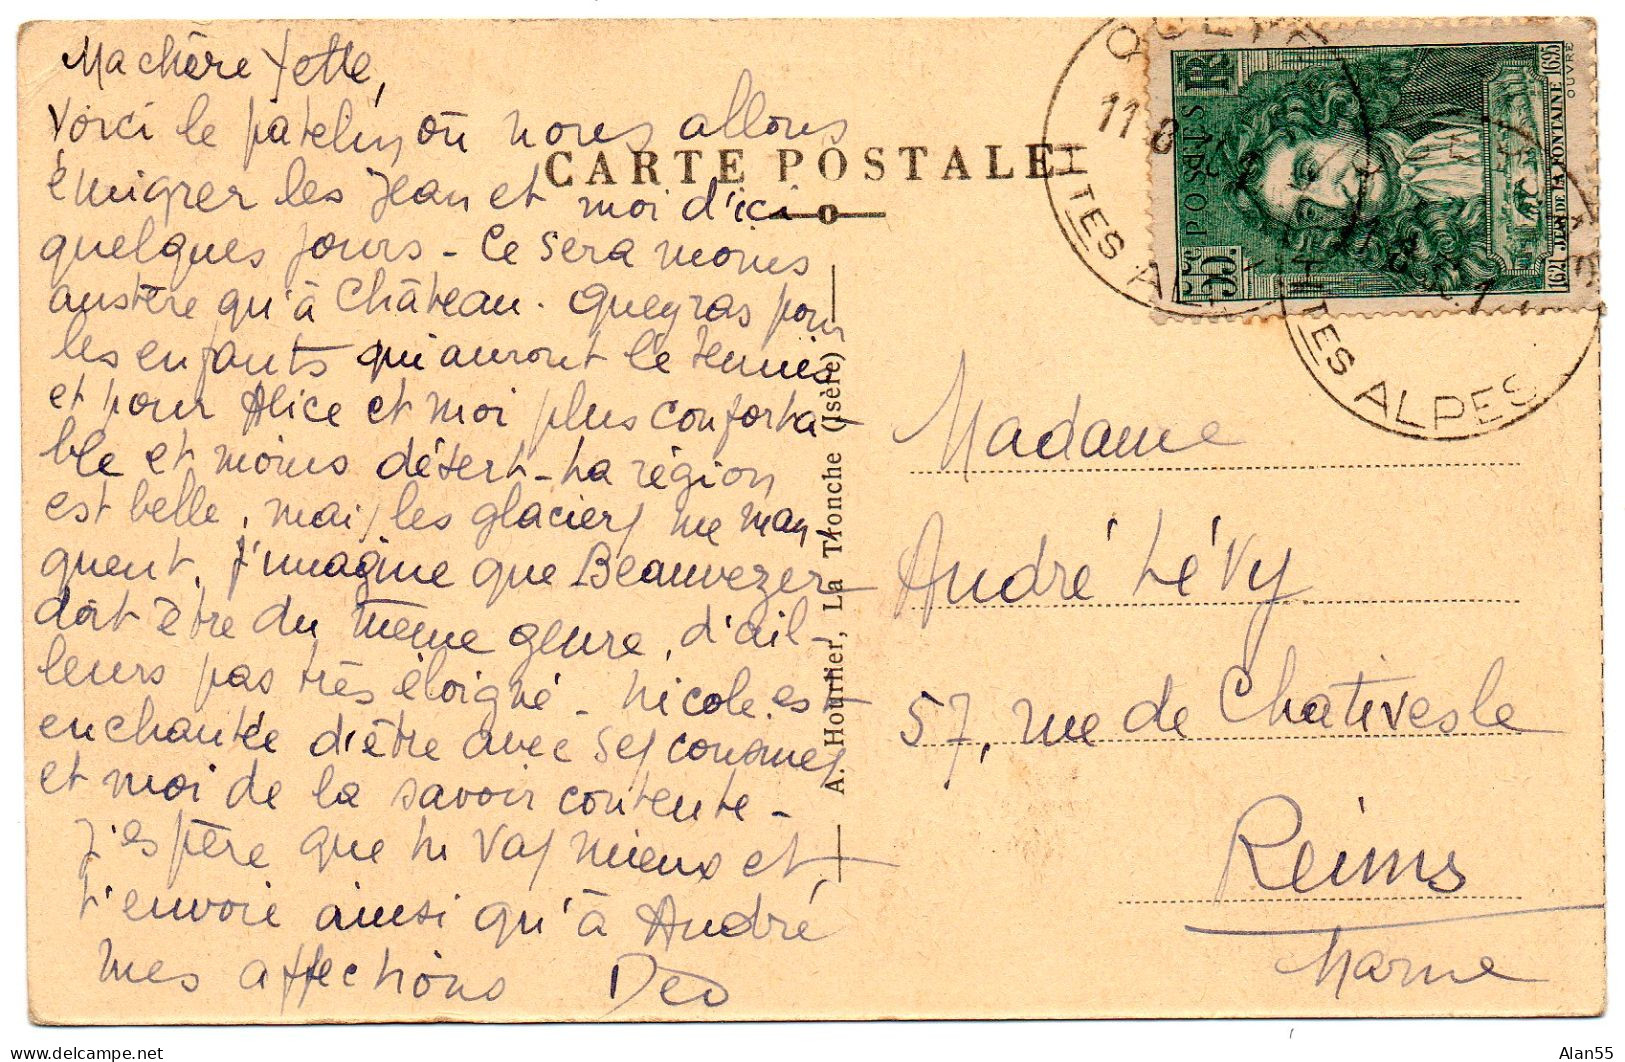 Ma chère Yette,
Voici le patelin où nous allons
émigrer les Jean et moi d'ici
quelques jours - Ce sera moins
austère qu'à Château-Queyras pour
les enfants qui auront le tennis
et pour Alice et moi plus conforta-
ble et moins désert - La région
est belle, mais les glaciers me man-
quent. J'imagine que Beauvezer
doit être du même genre, d'ail-
leurs pas très éloigné - Nicole est
enchantée d'être avec ses cousines
et moi de la savoir contente -
J'espère que tu vas mieux et
t'envoie ainsi qu'à André
mes affections Déo
CARTE POSTALE
A. Hourlier, La Tronche (Isère)
Madame
André Lévy
57, rue de Chativesle
Reims
Marne
RF
POSTES
55c
1621 JEAN DE LA FONTAINE 1695
OUVRÉ
11 8
HTES ALPES
HTES ALPES
Alan55